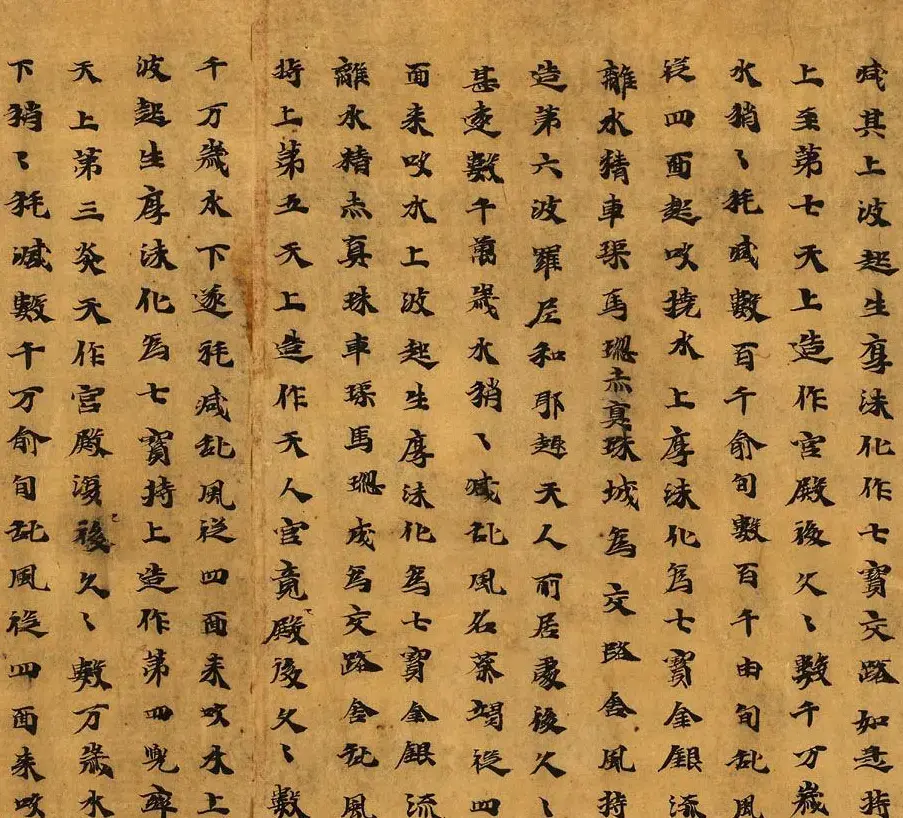 減其上波起生摩沫化作七寶交路如是持
上至第七天上造作宮殿後久〻數千万歲
水稍〻耗減數百千俞旬數百千由旬乱風
從四面起吹撓水上摩沫化為七寶金銀流
離水精車璖馬瑙赤真珠城為交路舍風持
造第六波羅尼和耶越天人所居處後久〻
甚遠數千萬歲水稍〻減乱風名蔡竭從四
面来吹水上波起生摩沫化為七寶金銀流
離水精赤真珠車璖馬瑙成為交路舍乱風
持上第五天上造作天人宮竟殿後久〻數
千万歲水下遂耗減乱風從四面来吹水上
波起生摩沫化為七寶持上造作第四兜率
天上第三炎天作宮殿復後久〻數万歲水
下稍〻耗減數千万俞旬乱風從四面来吹